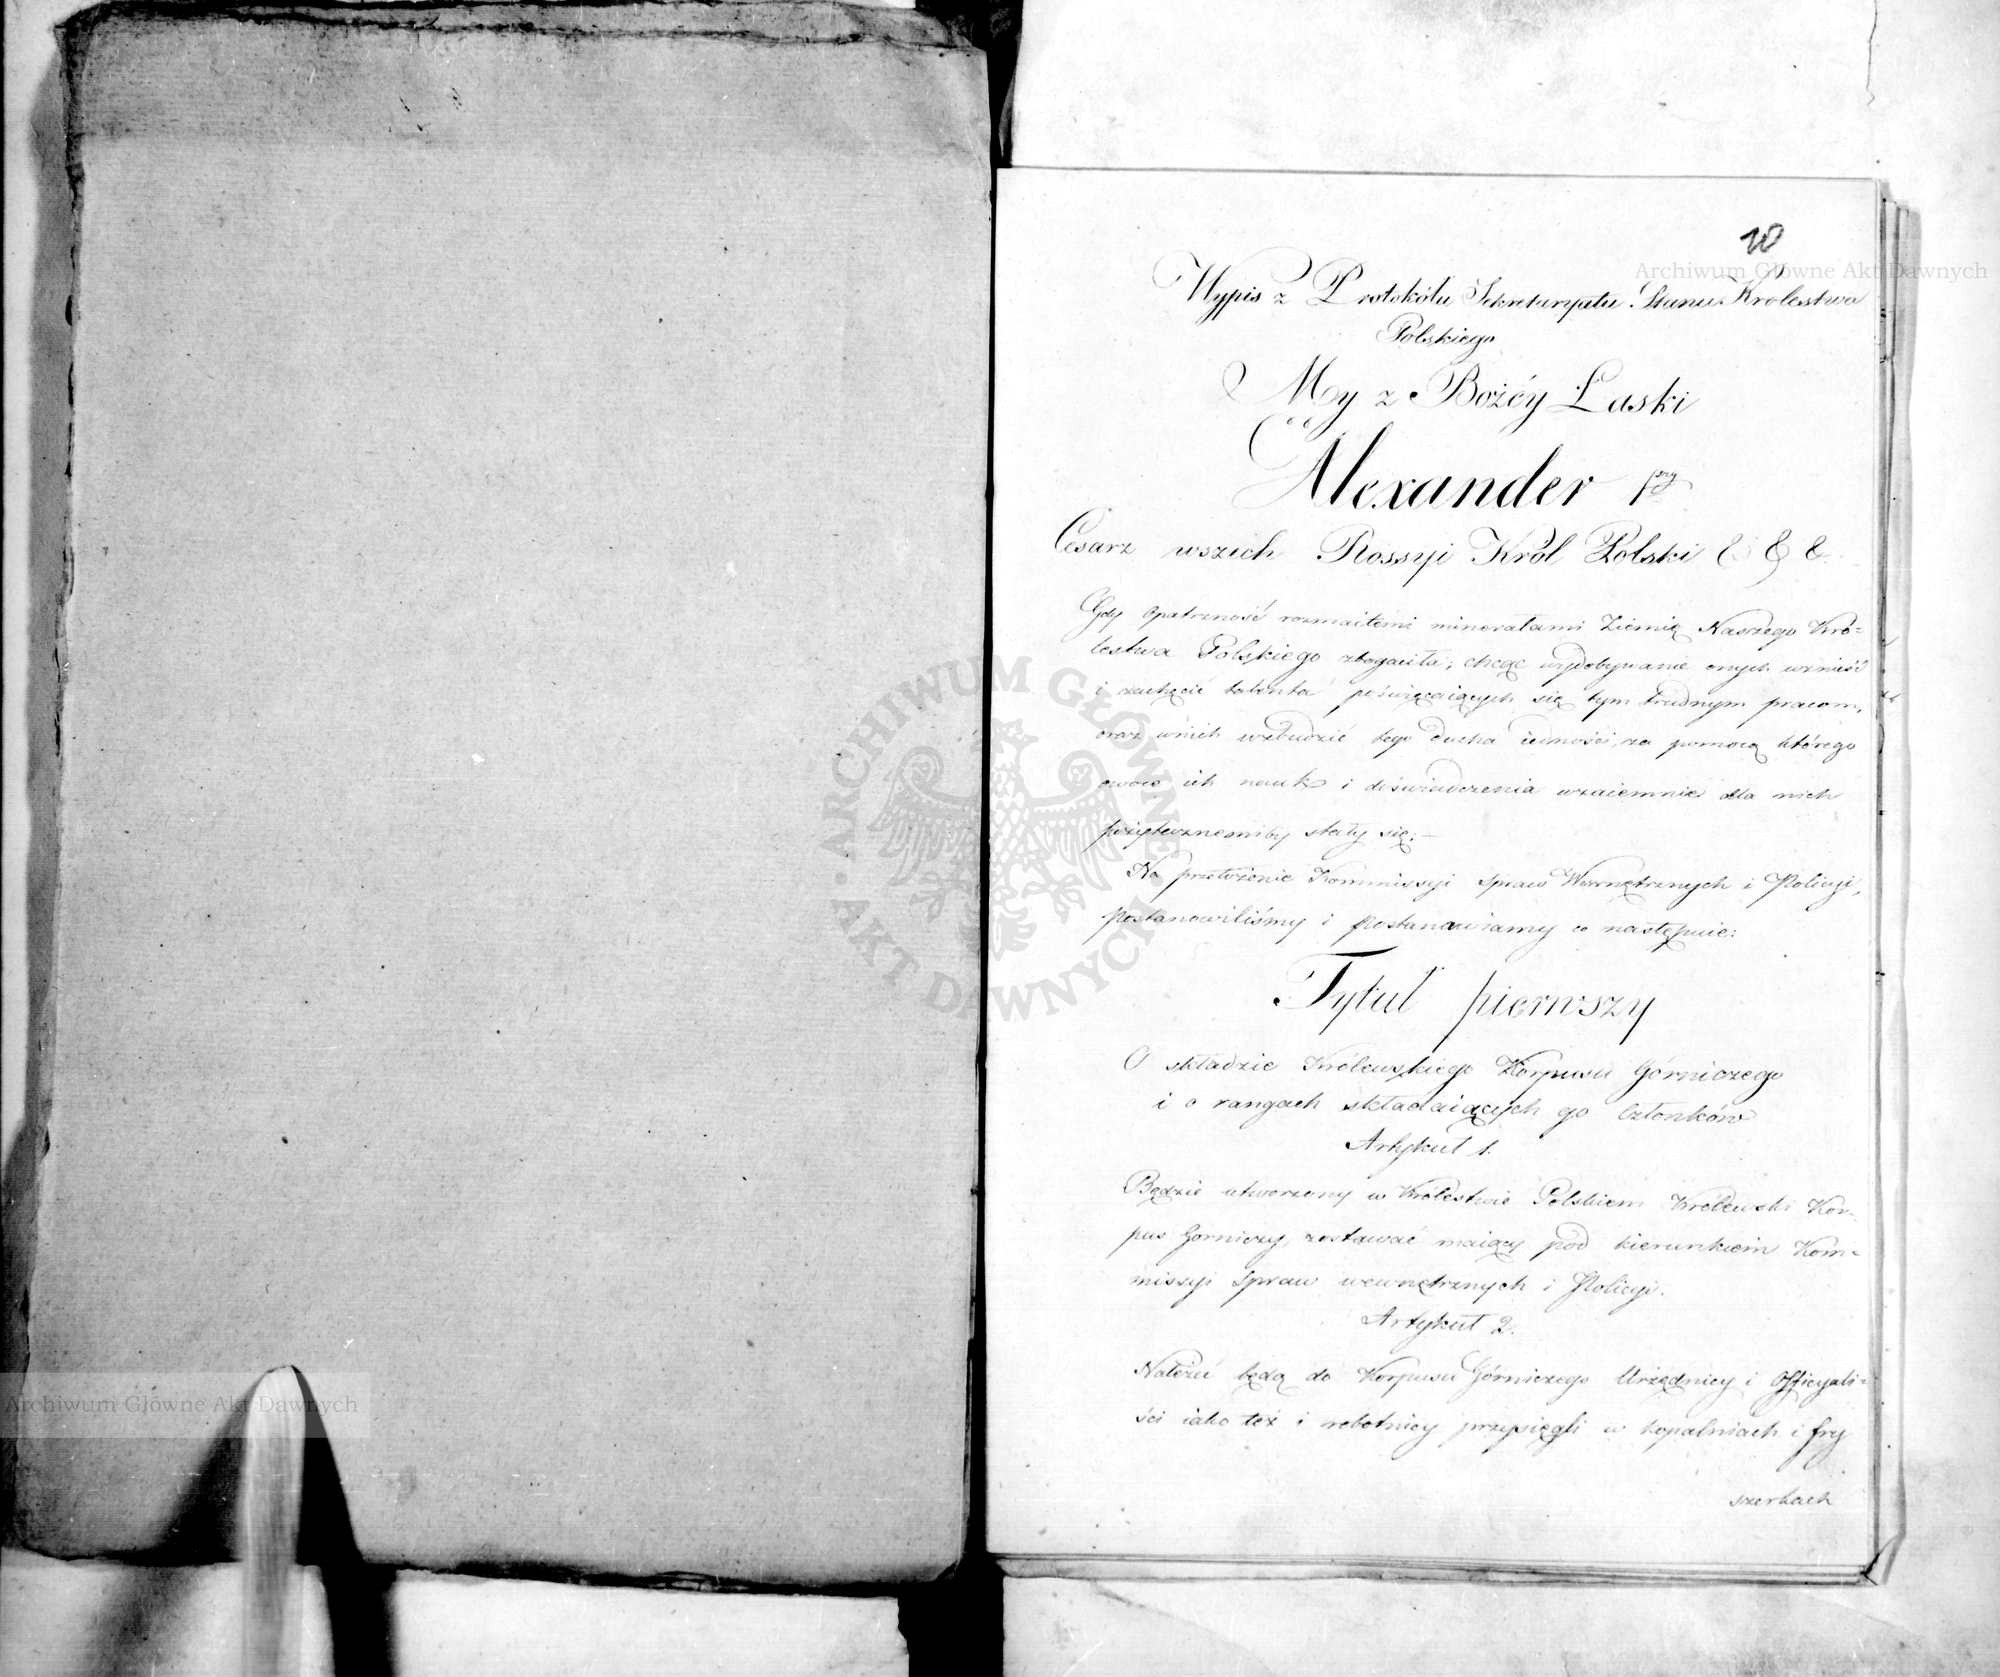 10
Archiwum Główne Akt Dawnych
Wypis z Protokółu Sekretaryatu Stanu Krolestwa
Polskiego
My z Bożéy Łaski
Alexander 1szy
Cesarz wszech Rossyi Król Polski & & &
Gdy Opatrzność rozmaitemi minerałami Ziemię Naszego Kró=
lestwa Polskiego zbogaciła; chcąc wydobywanie onych wznieść
i zachęcić talenta poświęcaiących się tym trudnym pracom,
oraz wnich wzbudzić tego ducha iedności, za pomocą którego
owoce ich nauk i doświadczenia wzaiemnie dla nich
pożytecznemiby stały się: —
Na przełożenie Kommissyi Spraw Wewnętrznych i Policyi,
postanowiliśmy i postanawiamy co następuie:
Tytuł pierwszy
O składzie Królewskiego Korpusu Górniczego
i o rangach składaiących go Członków
Artykuł 1.
Będzie utworzony w Królestwie Polskiem Królewski Kor=
pus Gorniczy, zostawać maiący pod kierunkiem Kom=
missyi Spraw wewnętrznych i Policyi.
Artykuł 2.
Należeć będą do Korpusu Górniczego Urzędnicy i Officyali=
ści iako też i robotnicy przysięgli w kopalniach i fry
szerkach
ARCHIWUM GŁÓWNE AKT DAWNYCH
Archiwum Główne Akt Dawnych